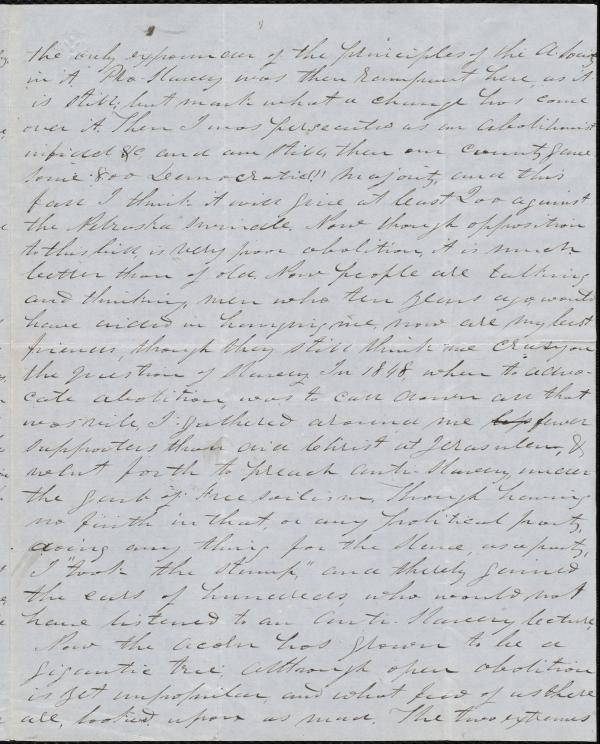 the only expounder of the principles of the A. Soc.
in it. Pro-Slavery was then rampant here, as it
is still; but mark what a change has come
over it. Then I was persecuted as an abolitionist
infidel &c and am still, then our county gave
some 800 Democratic!! majority, and this
fall I think it will give at least 200 against
the Nebraska swindle. Now though opposition
to this bill, is very poor abolition, it is much
better than of old. Now people are talking
and thinking, men who ten years ago, would
have aided in hanging me, now are my best
friends, though they still think me crazy on
the question of Slavery. In 1848, when to advo-
cate abolition, was to call down all that
was vile, I gathered around me fewer
supporters than did Christ at Jerusalem, &
went forth to preach Anti-Slavery, under
the garb of free soilism, though having
no faith in that, or any political party,
doing any thing for the Slave, as a party,
I took the Stump," and thereby gained
the ears of hundreds, who would not
have listened to an Anti-Slavery lecture.
Now the acorn has grown to be a
gigantic tree, although open abolition
is yet unpopular, and what few of us there
are, looked upon as mad. The two extremes